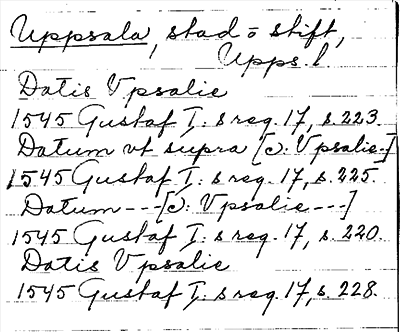 Uppsala, stad o stift,
Upps. l.
Datis Vpsalie
1545 Gustaf I: s reg. 17, s. 223.
Datum vt supra [ɔ: Vpsalie.]
1545 Gustaf I: s reg. 17, s. 225.
Datum --- [ɔ: Vpsalie ---]
1545 Gustaf I: s reg. 17, s. 220.
Datis Vpsalie
1545 Gustaf I: s reg. 17, s. 228.